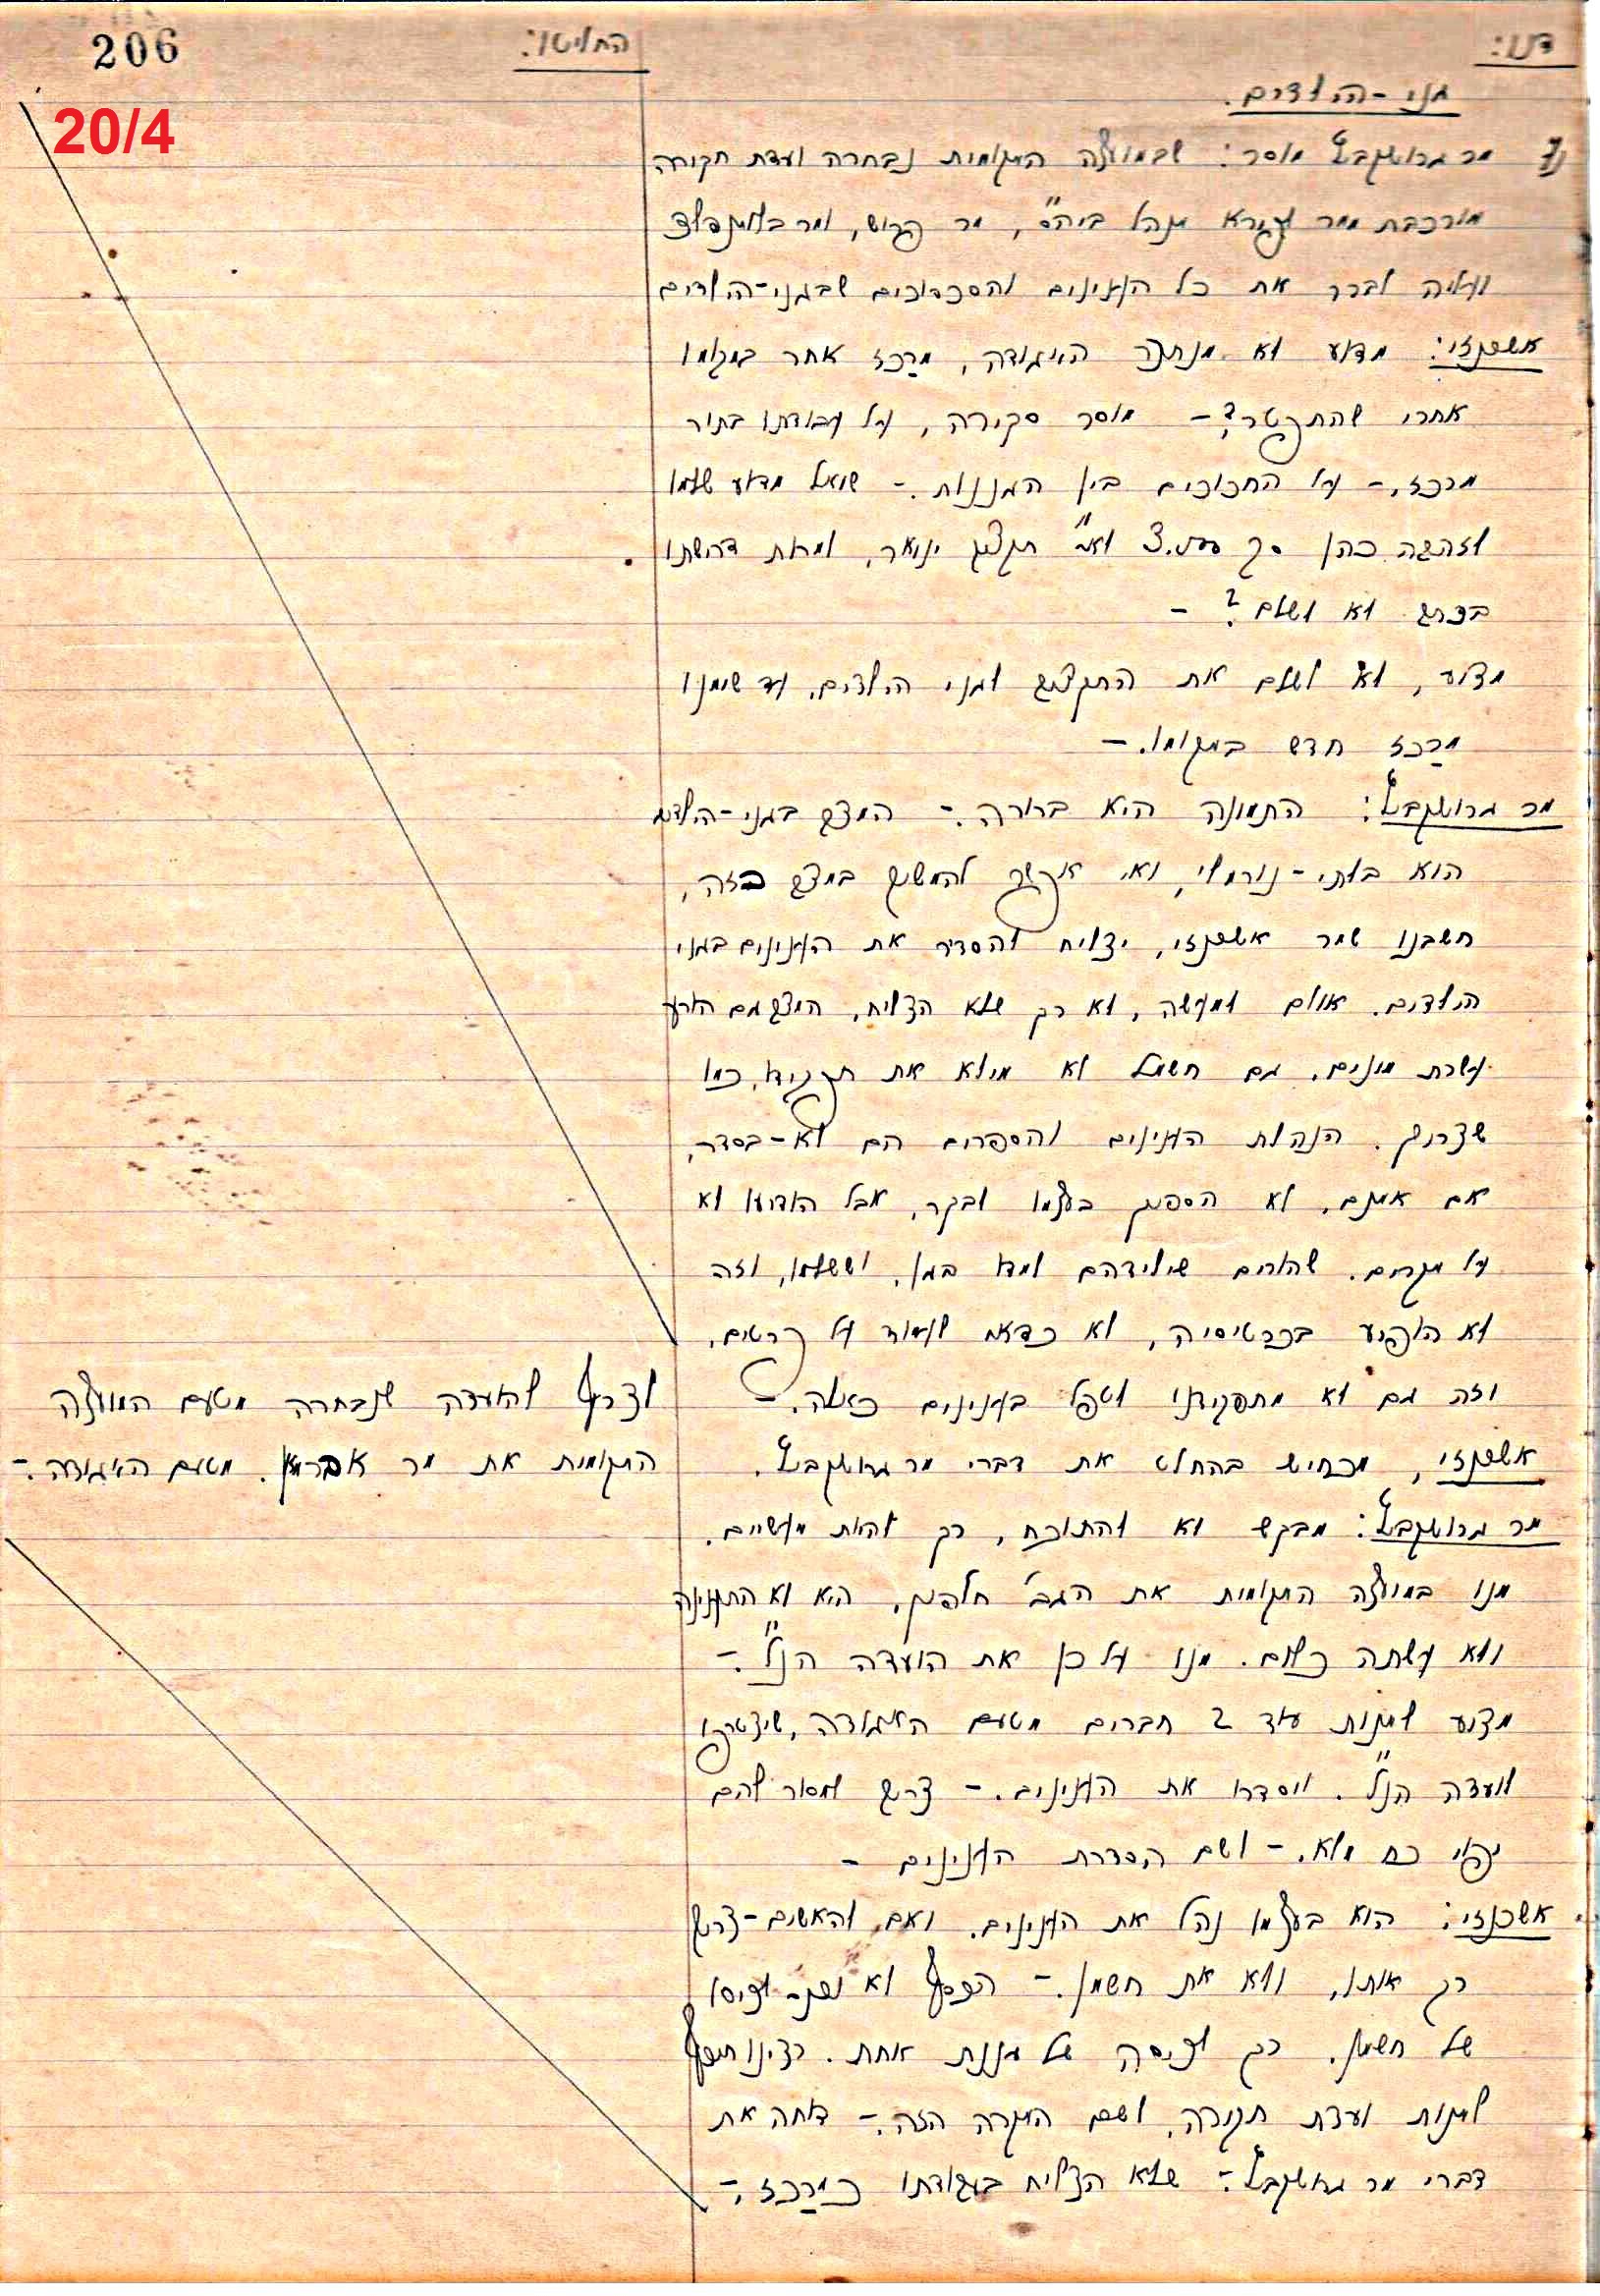 206
20/4
דנו:
החליטו:
גני-הילדים.
מר גרושקביץ מוסר: שבמועצה המקומית נבחרה ועדת חקירה
מורכבת ממר עזרא מנהל ביה"ס, מר קרוש, ומר בלומנפלד
ועליה לברר את כל הענינים והסכסוכים שבגני-הילדים
אשכנזי: מדוע לא מנתה האיגודה, מרכז אחר במקומו
אחרי שהתפטר? - מוסר סקירה, על עבודתו בתור
מרכז, - על החכוכים בין הגננות. - שואל מדוע שלמו
לזהבה כהן סך ע"ח תקציב ינואר, ולמרות דרישתו
בצדק לא לשלם? -
מציע, לא לשלם את התקציב לגני הילדים, עד שימנו
מרכז חדש במקומו. -
מר גרושקביץ: התמונה היא ברורה. - המצב בגני-הילדים
הוא בלתי-נורמלי, ואי אפשר להמשיך במצב כזה,
חשבנו שמר אשכנזי, יצליח להסדיר את הענינים בגני
הילדים. אולם למעשה, לא רק שלא הצליח, המצב גם הורע
עשרת מונים. גם חשמן לא מילא את תפקידו, כמו
שצריך. הנהלת הענינים והספרים הם לא-בסדר,
אם אמנם, לא הספיק בעצמו לבקר, אבל הודיעו לא
על מקרים. שהורים שילידהם למדו בגן, וששלמו, וזה
לא הופיע בכרטיסיה, לא כדאי לעמוד על פרטים,
וזה גם לא מתפקידנו לטפל בענינים כאלה. -
אשכנזי, מכחיש בהחלט את דברי מר גרושקביץ.
מר גרושקביץ: מבקש לא להתוכח, רק להיות מעשיים.
מנו במועצה המקומית את הגב' חלפון, היא לא התענינה
ולא עשתה כלום. מנו על כן את הועדה הנ"ל. -
מציע למנות עוד 2 חברים מטעם האיגודה, שיצטרפו
לועדה הנ"ל. ויסדרו את הענינים. - צריך למסור להם
יפוי כח מלא. - לשם הסדרת הענינים -
אשכנזי: הוא בעצמו נהל את הענינים. ואם להאשים - צריך
רק אותו, ולא את חשמן. - הכסף לא נפל לכיסו
של חשמן. רק לכיסה של גננת אחת. רצינו
למנות ועדת חקירה, לשם המקרה הזה. - דוחה את
דברי מר גרושקביץ - שלא הצליח בעבודתו כמרכז. -
לצרף להועדה שנבחרה מטעם המועצה
המקומית את מר אברמץ. מטעם האיגודה. -